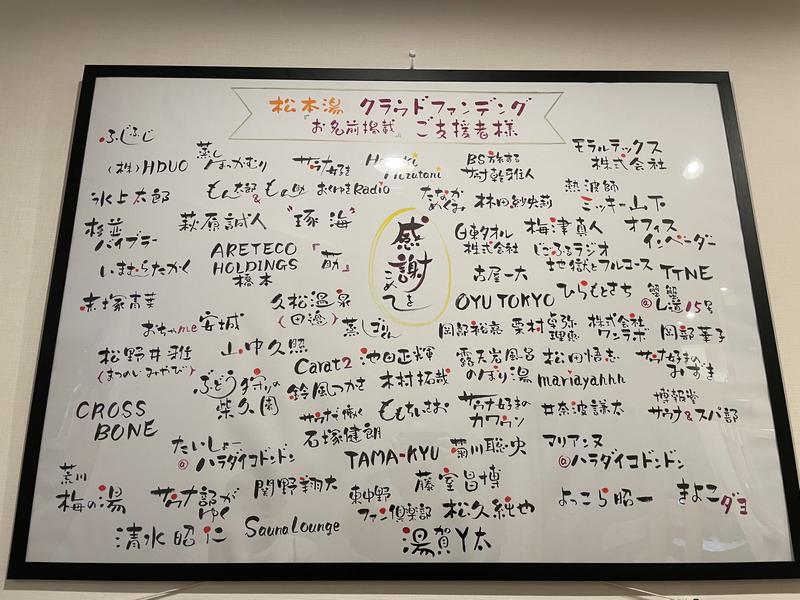 松本湯 クラウドファンディング
『お名前掲載』 ご支援者様
ふじふじ
(株)HDUO
蒸し
サウナ好き
モラルテックス
株式会社
氷上太郎
もん太郎 & もん助
おくゆきRadio
たなか
めぐみ
林田紗央莉
熱波師
ミッキー山下
杉並
バイブラー
萩原誠人
"琢海"
感謝
こめて
を
株式会社
梅津真人
じごろうラジオ
オフィス
インベーダー
いまむらたかく
ARETECO
HOLDINGS
橋本
古屋一大
地獄とフルコース
TTNE
赤塚高葉
久松温泉
(田邊)
OYU TOKYO
ひらもとさち
おちゃme安城
岡部裕亮
栗村
株式会社
ワンラボ
岡部華子
松野井雅
(まつのいみやび)
山中久照
Carat2
池田正輝
露天岩風呂
のぼり湯
松田悟志
サウナ好きの
みずき
ぶどう狩りの
柴久園
鈴風つかさ
木村拓哉
mariayahhh
CROSS
BONE
サウナで働く
石塚健朗
ももちいさお
サウナ好きの
カワウソ
井奈波謙太
博報堂
サウナ&スパ部
たいしょー
@ハラダイコドンドン
TAMA-KYU
菊川聡央
マリアンヌ
@ハラダイコドンドン
荒川
梅の湯
サウナ部が
ゆく
関野翔太
東中野
ファン倶楽部
藤室昌博
松久純也
よっこら昭一
きよこダヨ
清水昭仁
SaunaLounge
湯賀Y太